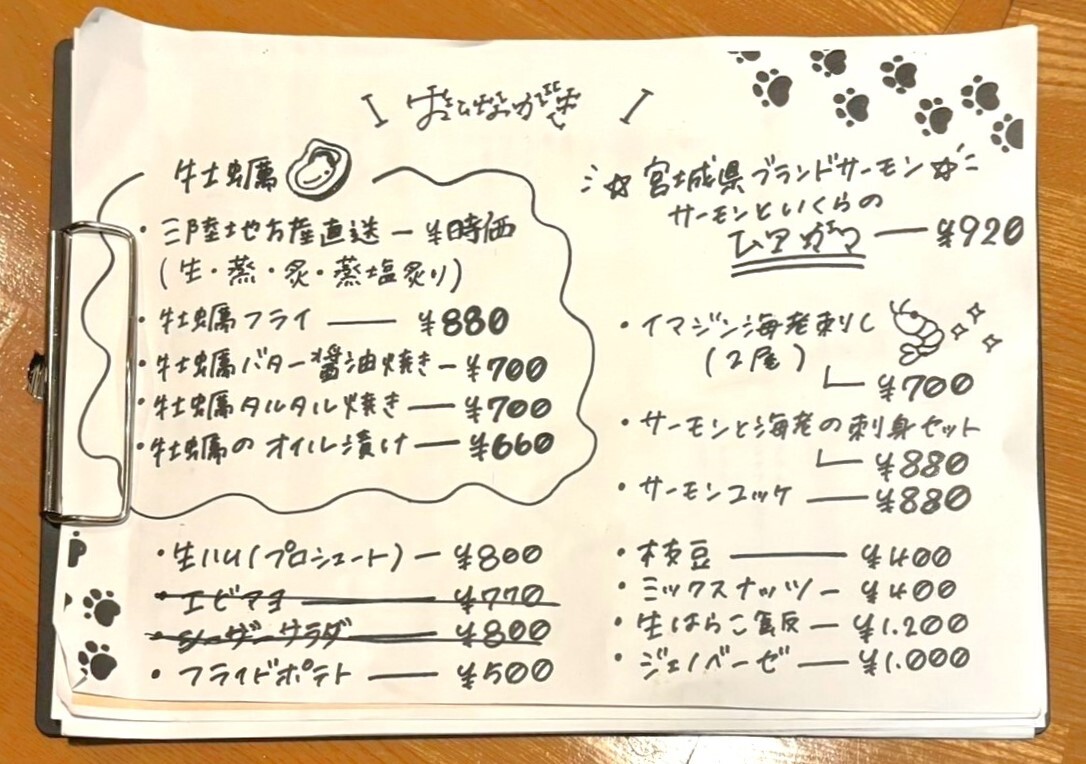 おしながき
牡蠣
・三陸地方産直送 ― ¥時価
(生・蒸・炙・蒸塩炙り)
・牡蠣フライ ― ¥880
・牡蠣バター醤油焼き ― ¥700
・牡蠣タルタル焼き ― ¥700
・牡蠣のオイル漬け ― ¥660
・生ハム(プロシュート) ― ¥800
・エビマヨ ― ¥770
・シーザーサラダ ― ¥800
・フライドポテト ― ¥500
☆宮城県ブランドサーモン☆
サーモンといくらの
― ¥920
・イマジン海老刺し
(2尾)
¥700
・サーモンと海老の刺身セット
¥880
・サーモンユッケ ― ¥880
・枝豆 ― ¥400
・ミックスナッツ ― ¥400
・生はらこ飯 ― ¥1.200
・ジェノベーゼ ― ¥1.000